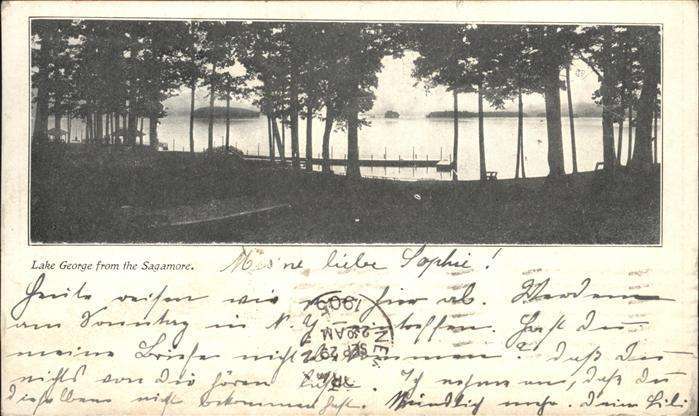 Lake George from the Sagamore.
Meine liebe Sophie!
Heute reisen wir hier ab. Werden
am Sonntag in N.Y. eintreffen. Hast du
meine Briefe nicht bekommen? daß du
nichts von dir hören. Ich nehme an, daß du
dieselben nicht bekommen hast. Mündlich mehr. Deine
1905
SEP 29
2 30 AM
N.Y.